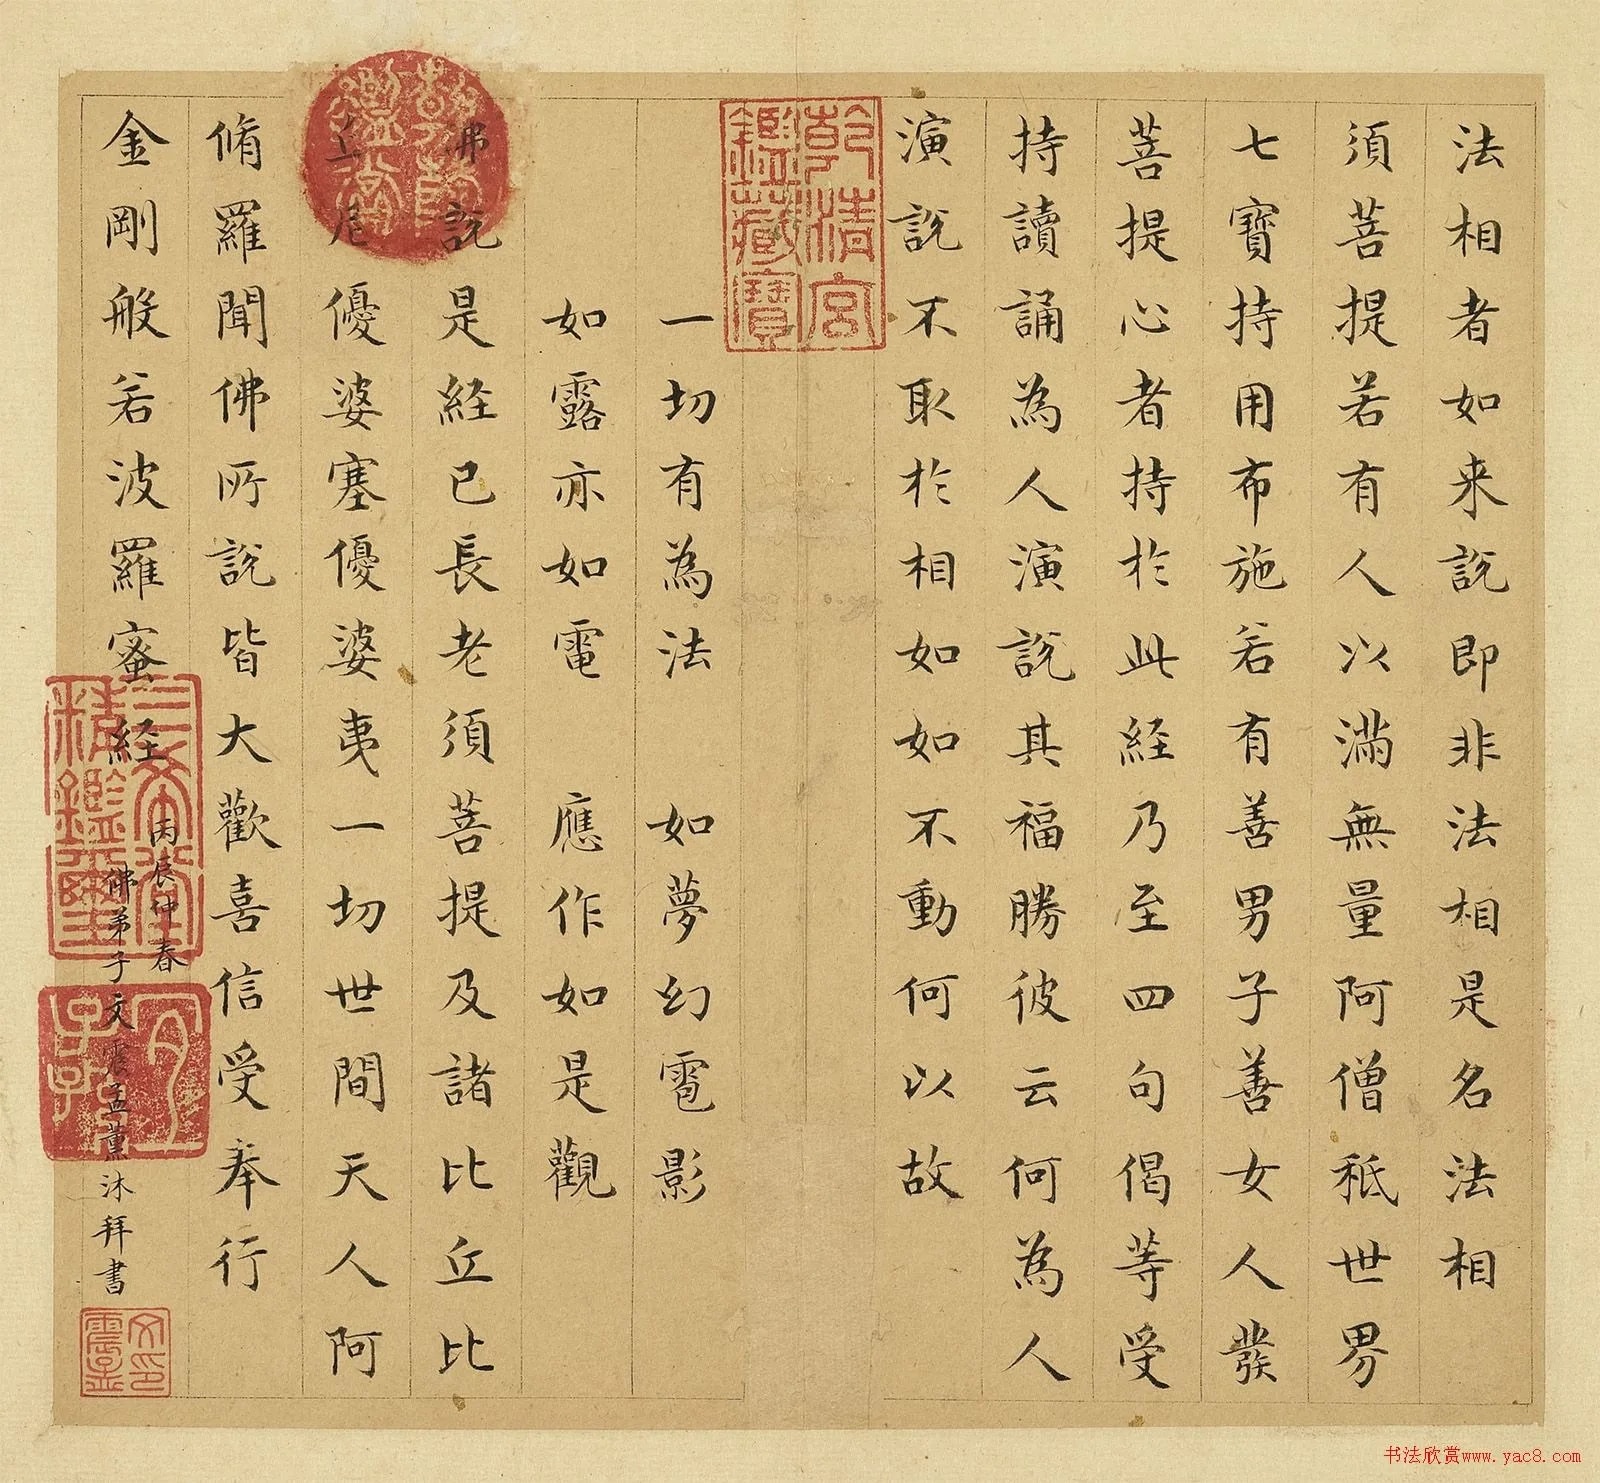 法相者如来説即非法相是名法相
須菩提若有人以滿無量阿僧秖世界
七寶持用布施若有善男子善女人發
菩提心者持於此経乃至四句偈等受
持讀誦為人演説其福勝彼云何為人
演説不取於相如如不動何以故
一切有為法 如夢幻雹影
如露亦如電 應作如是觀
佛説是経已長老須菩提及諸比丘比
丘尼優婆塞優婆夷一切世間天人阿
脩羅聞佛所説皆大歡喜信受奉行
金剛般若波羅蜜経
丙辰仲春
佛弟子文震孟薰沐拜書
乾清宮鑑藏寶
三希堂精鑑璽
宜子孫
文震孟印
书法欣赏www.yac8.com